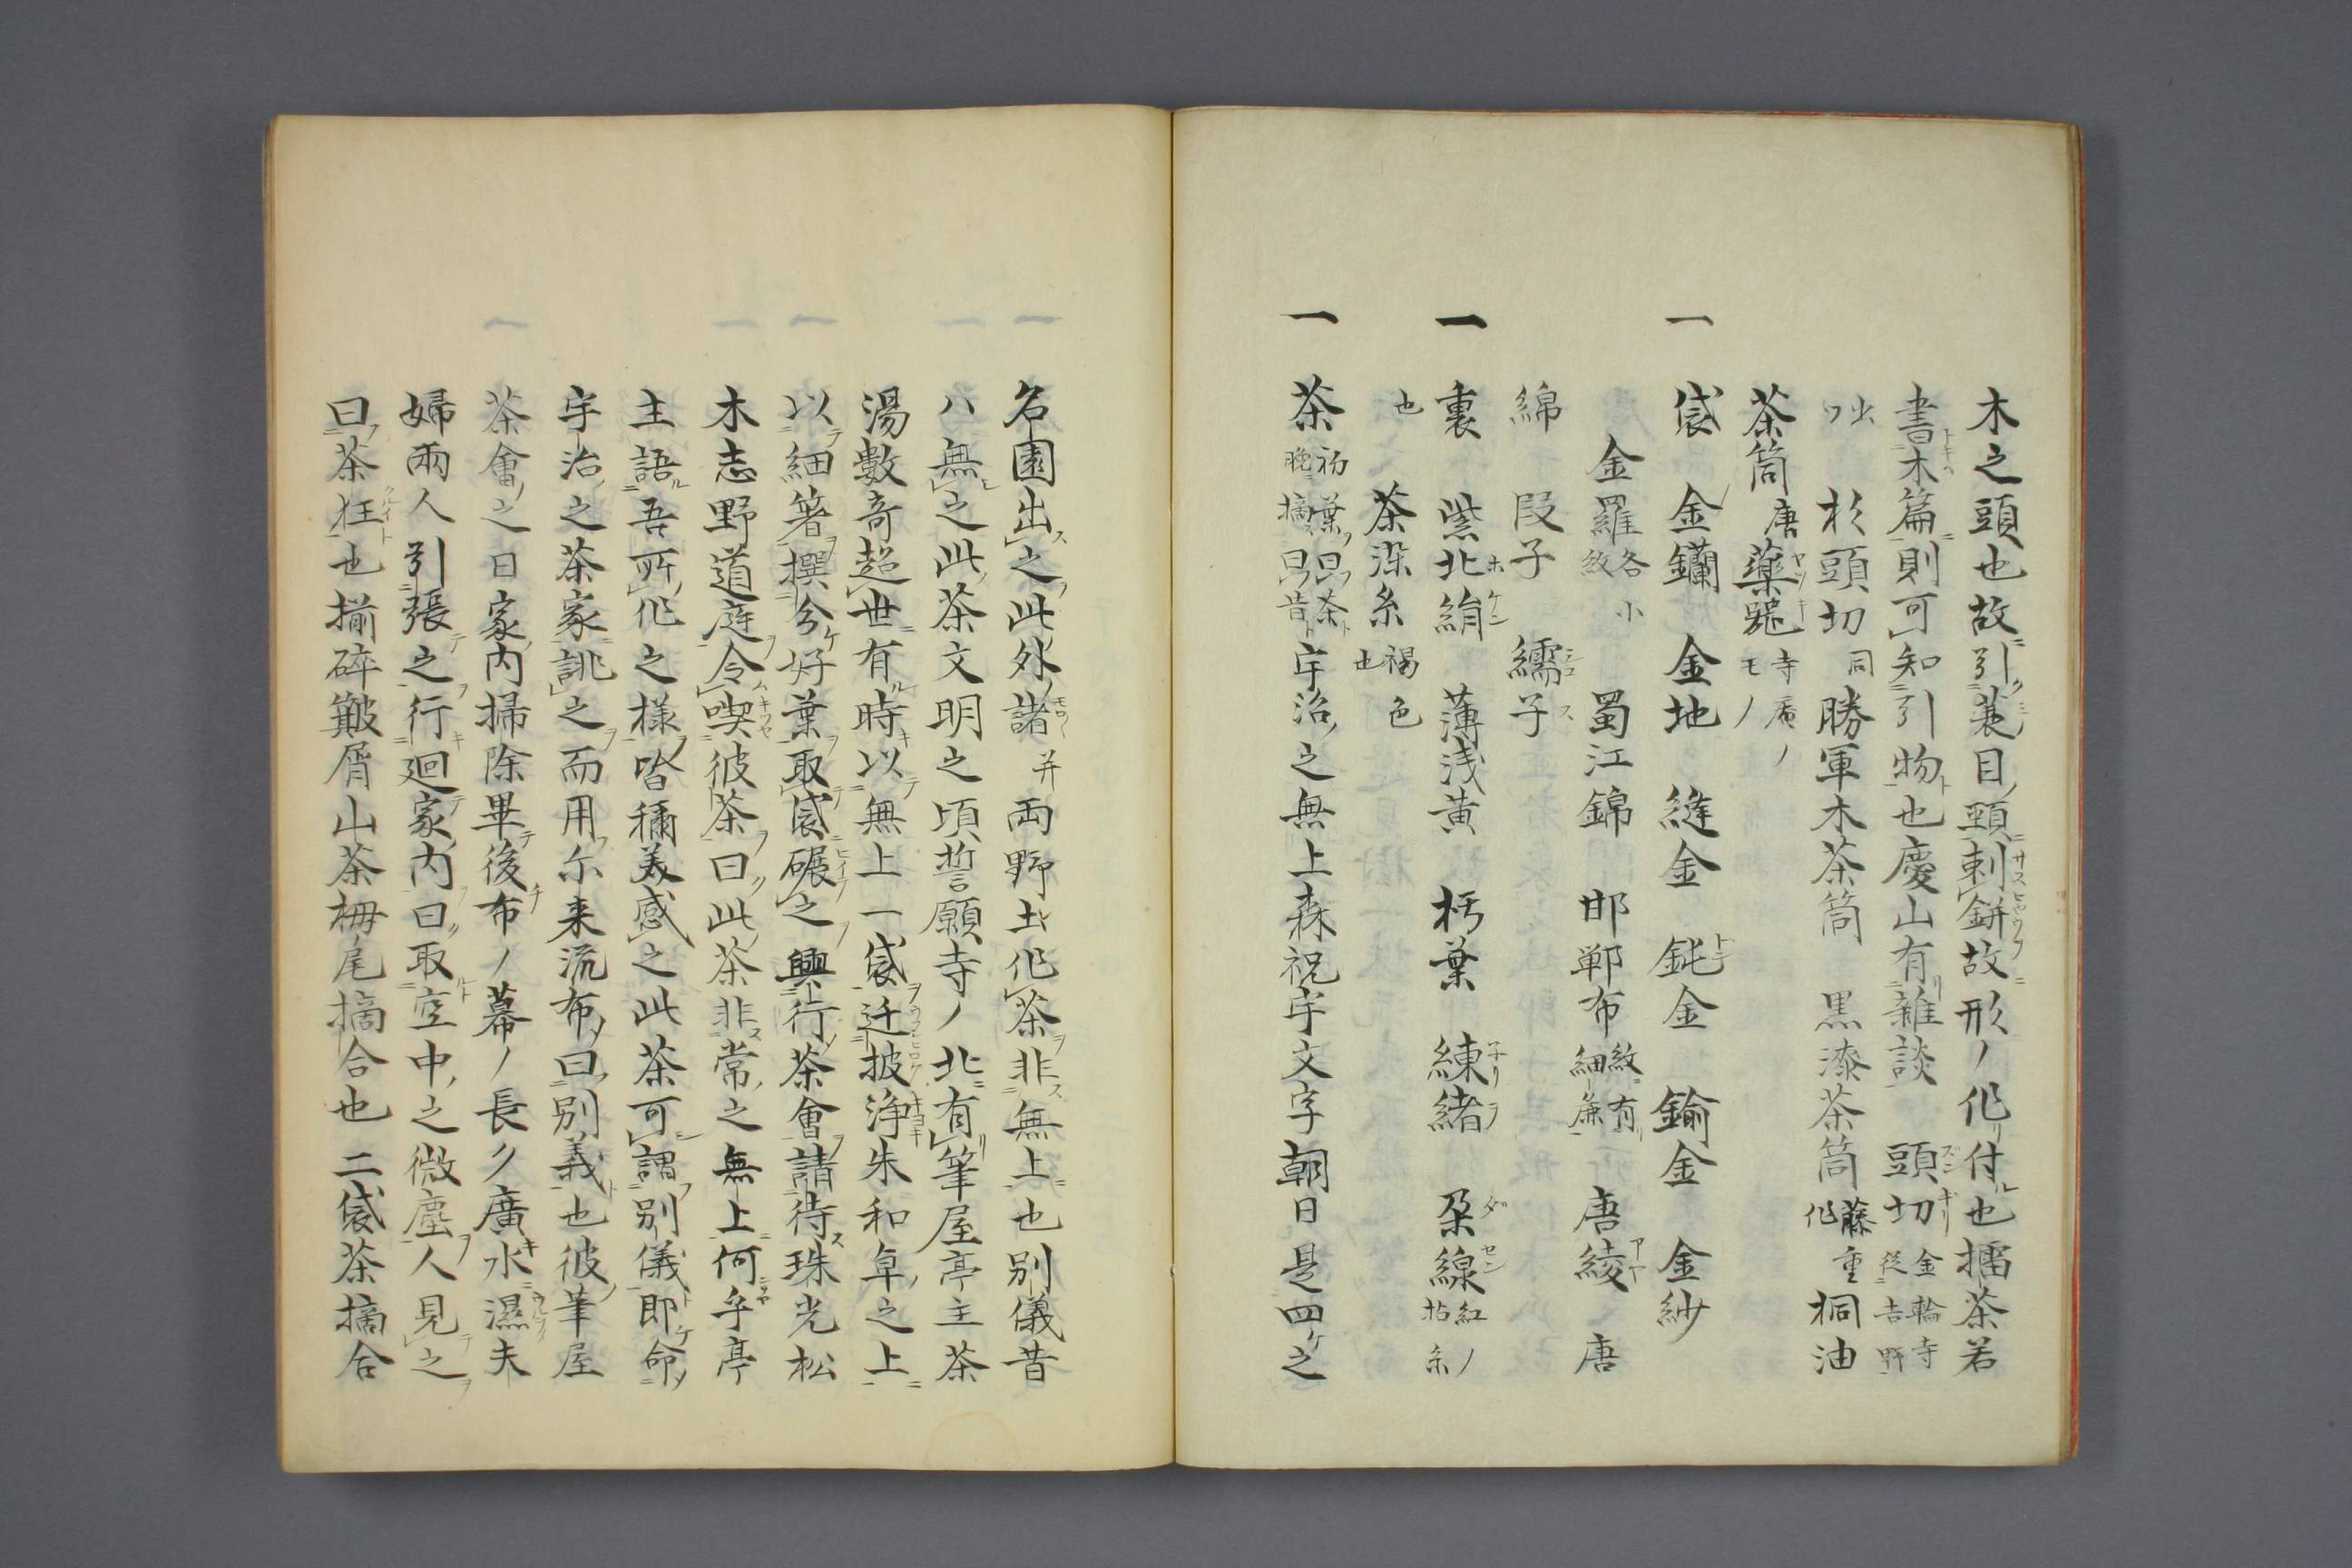 木之頭也故引蓑目頸刺餅故形ノ作付也擂茶若
書木篇則可知引物也慶山有雜談 頭切 金輪寺従吉野
出 杉頭切 同 勝軍木茶筒 黒漆茶筒 藤重作 桐油
茶筒 唐藥器 寺庵ノモノ
一 袋 金鑭 金地 縫金 鈍金 鍮金 金紗
金羅 各小紋 蜀江錦 邯郸布 紋有細廉 唐綾 唐
綿 段子 繻子
一 裏 紫北絹 薄浅黄 朽葉 練緒 朶線 紅ノ拈糸
也 茶染糸 褐色也
一 茶 初葉曰茶晩摘曰昔 宇治之無上森祝宇文字朝日是四ケ之
一 名園出之此外諸并両野土作茶非無上也別儀昔
ハ無之此茶文明之頃誓願寺ノ北有筆屋亭主茶
湯數奇超世有時以無上一袋迁披浄朱和卓之上
以細箸撰分好葉取袋碾之興行茶會請待珠光松
木志野道庭令喫彼茶曰此茶非常之無上何乎亭
主語吾所作之様皆穪美感之此茶可謂別儀即命
宇治之茶家誂之而用尓来流布曰別義也彼筆屋
茶會之日家内掃除畢後布ノ幕ノ長ク廣水濕夫
婦兩人引張之行廻家内曰取空中之微塵人見之
曰茶狂也揃碎簸屑山茶栂尾摘合也 二袋茶摘合